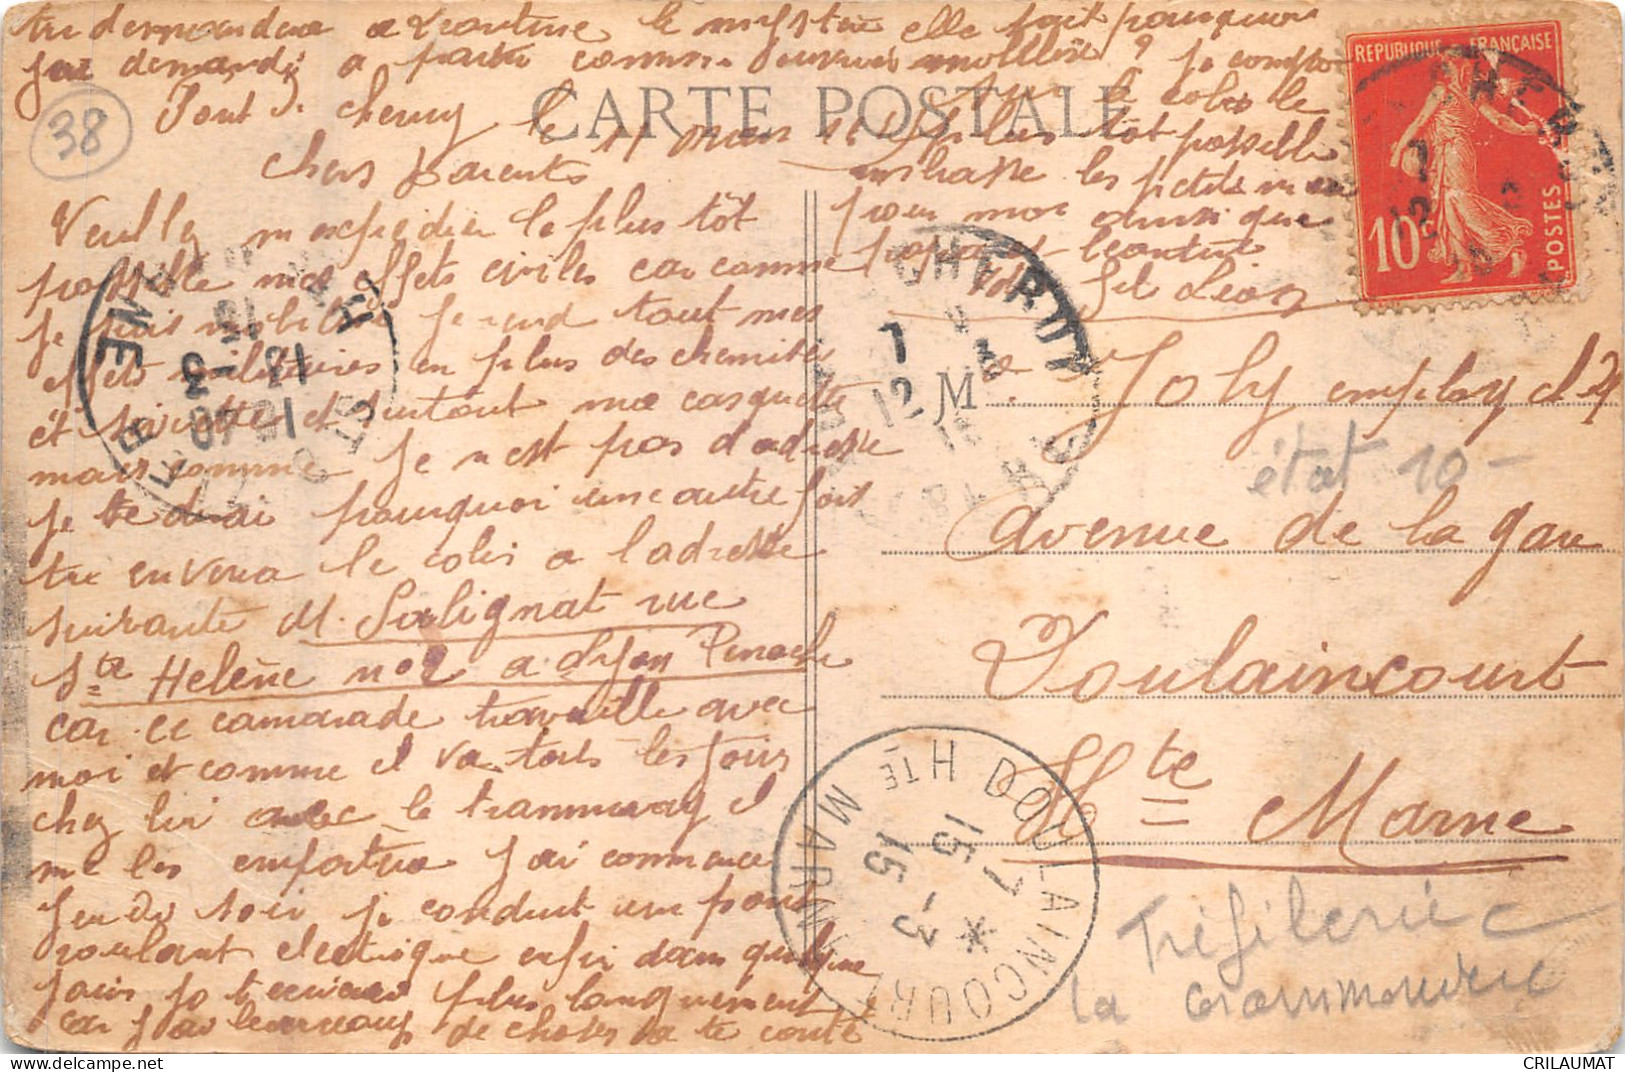 tu demandera a Léontine le mystère elle sait pourquoi
j'ai demandé a partir comme ouvrier ? je compte
38
CARTE POSTALE
Pont de Cheruy le 11 mars 1915
chers parents
Veuillez m'expedier le plus tôt
possible mes effets civiles car comme
je suis mobilisé je rend tout mes
effets militaires en plus des chemises
et serviette et surtout ma casquette
mais comme je n'est pas d'adresse
je te dirai pourquoi une autre fois
tu enverra le colis a l'adresse
suivante M. Salignat rue
Ste Helène no 2 a Lyon
car ce camarade travaille avec
moi et comme il va tous les jours
chez lui avec le trammway il
me les emportera j'ai commencé
jeudi soir je conduit un pont
roulant electrique enfin dans quelque
jours je t'ecrirai plus longuement
car j'ai beaucoup de choses a te conté
sur le colis le
plus tôt possible
embrasse les petits
pour moi ainsi que
papa et Léontine
Votre fils Léon
REPUBLIQUE FRANÇAISE
10c
POSTES
CHERUY
M me Joly employ
état 10 -
avenue de la gare
Doulaincourt
Hte Marne
DOULAINCOURT HTE MARNE
15-7
15-3
15
Tréfilerie
la
CRILAUMAT